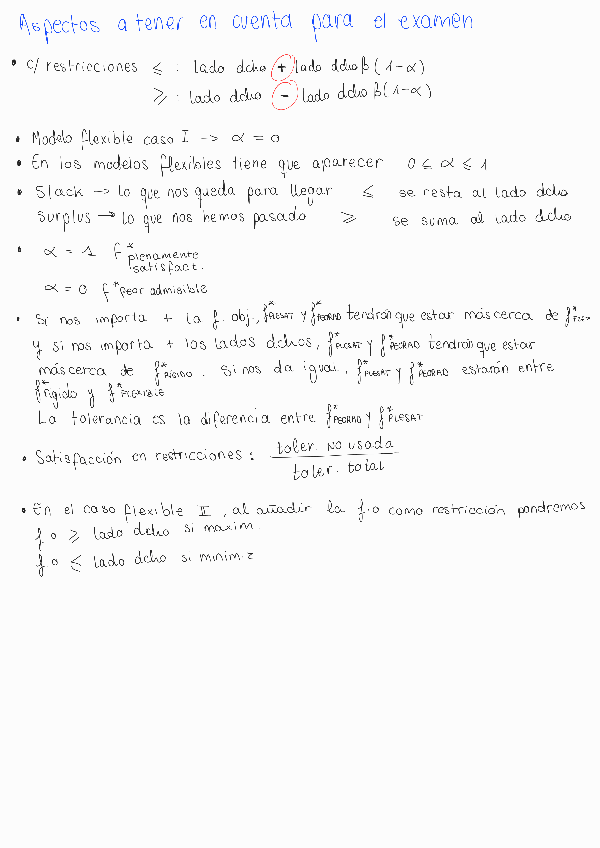 Aspectos a tener en cuenta para el examen
• c/ restricciones ≤ : lado dcho + lado dcho β(1-α)
≥ : lado dcho - lado dcho β(1-α)
• Modelo flexible caso I -> α = 0
• En los modelos flexibles tiene que aparecer 0 ≤ α ≤ 1
• Slack -> lo que nos queda para llegar ≤ se resta al lado dcho
Surplus -> lo que nos hemos pasado ≥ se suma al lado dcho
• α = 1 f* plenamente
satisfact.
α = 0 f* peor admisible
• Si nos importa + la f. obj., f*PLESAT y f*PEORAD tendrán que estar más cerca de f*FLEX
y si nos importa + los lados dchos, f*PLESAT y f*PEORAD tendrán que estar
más cerca de f*RÍGIDO. Si nos da igual, f*PLESAT y f*PEORAD estarán entre
f*rígido y f*FLEXIBLE
La tolerancia es la diferencia entre f*PEORAD y f*PLESAT
• Satisfacción en restricciones: toler. NO usada
toler. total
• En el caso flexible II, al añadir la f.o como restricción pondremos
f o ≥ lado dcho si maxim.
f o ≤ lado dcho si minimiz